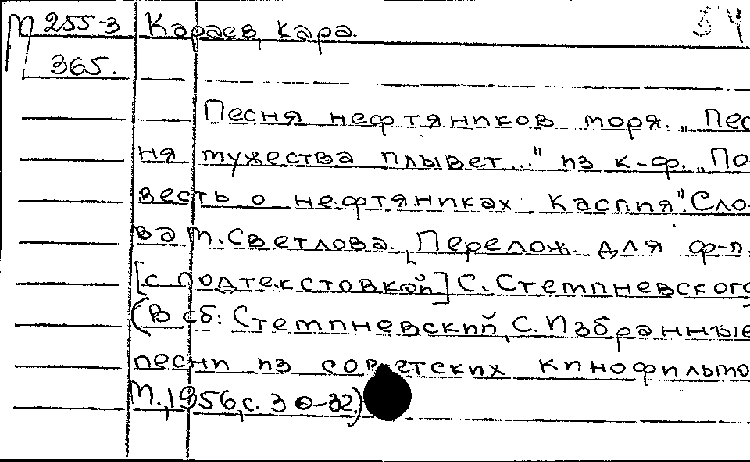 М 255-3 Караев, Кара. 54
365.
Песня нефтяников моря. „Пес-
ня мужества плывет..." из к-ф. „По-
весть о нефтяниках Каспия". Сло-
ва М. Светлова. Перелож. для ф-п.
[с подтекстовкой] С. Стемпневского
(В сб: Стемпневский, С. Избранные
песни из советских кинофильмо
М., 1956, с. 30-32)